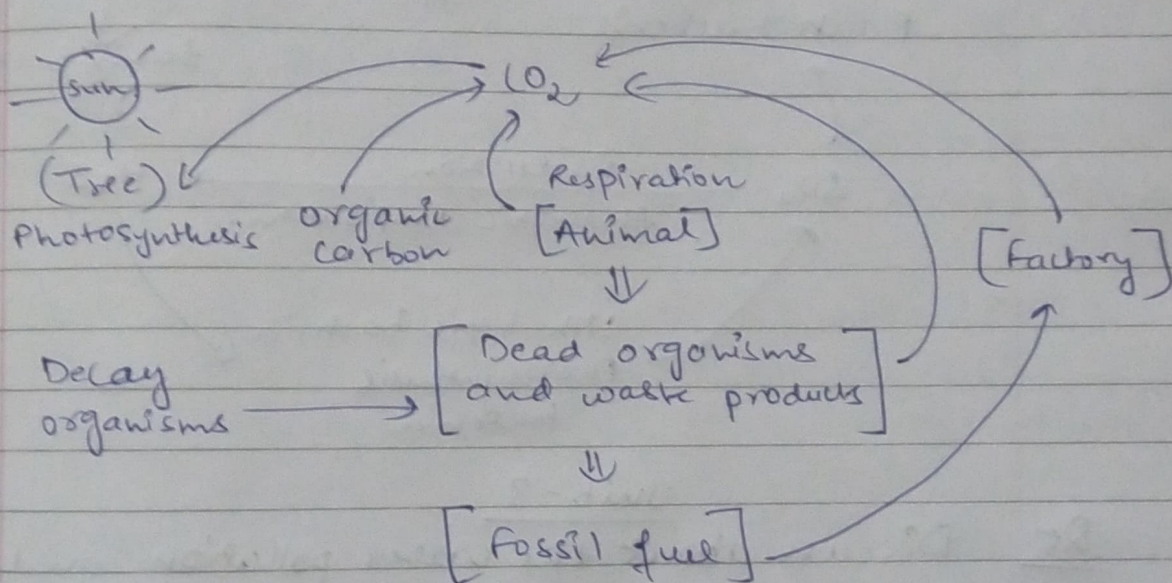 Sun
CO2
(Tree)
Photosynthesis
organic
carbon
Respiration
[Animal]
[Factory]
Decay
organisms
[Dead organisms
and waste products]
[Fossil fuel]